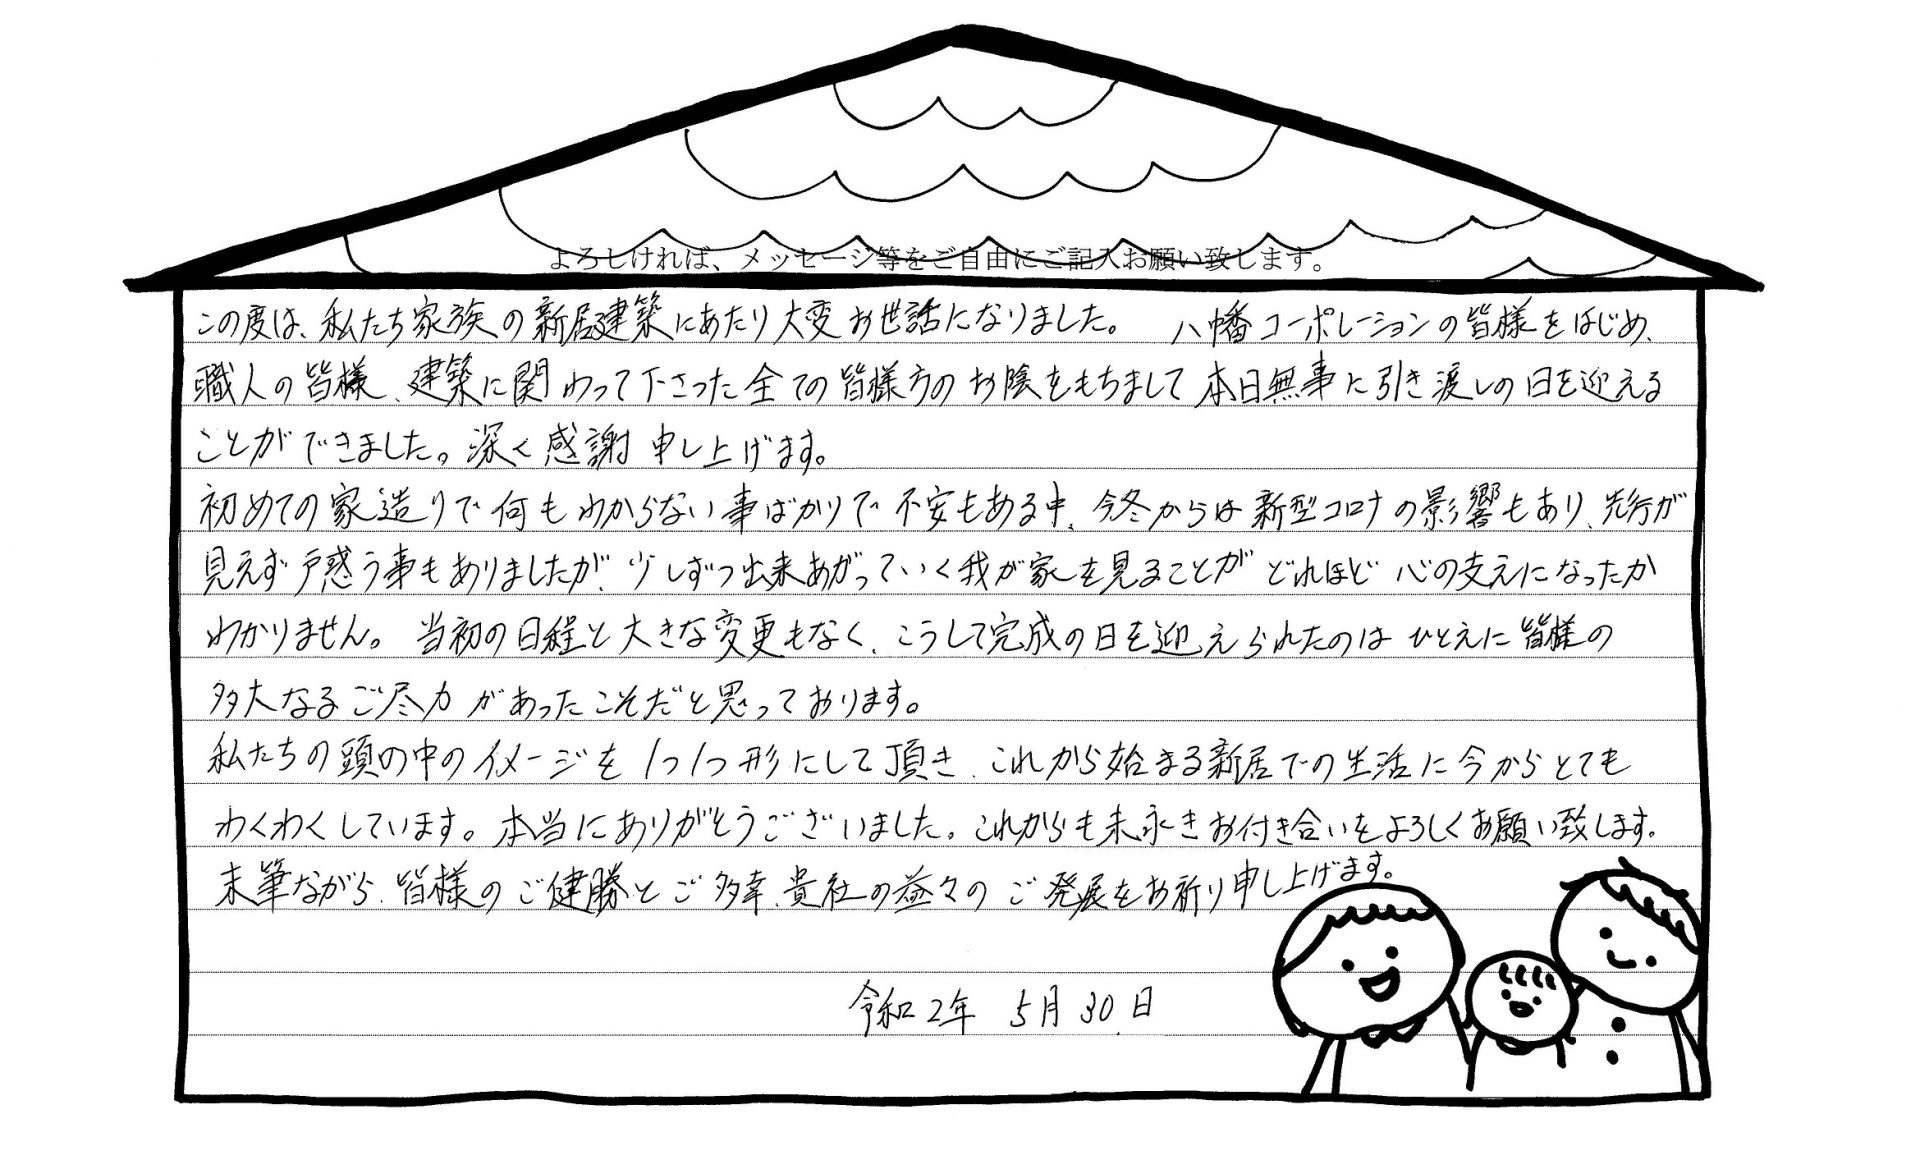 よろしければ、メッセージ等をご自由にご記入お願い致します。
この度は、私たち家族の新居建築にあたり大変お世話になりました。 八幡コーポレーションの皆様をはじめ、
職人の皆様、建築に関わって下さった全ての皆様方のお陰をもちまして本日無事に引き渡しの日を迎える
ことができました。深く感謝申し上げます。
初めての家造りで何もわからない事ばかりで不安もある中、今冬からは新型コロナの影響もあり、先行が
見えず戸惑う事もありましたが、少しずつ出来あがっていく我が家を見ることがどれほど心の支えになったか
わかりません。当初の日程と大きな変更もなく、こうして完成の日を迎えられたのはひとえに皆様の
多大なるご尽力があったこそだと思っております。
私たちの頭の中のイメージを1つ1つ形にして頂き、これから始まる新居での生活に今からとても
わくわくしています。本当にありがとうございました。これからも末永きお付き合いをよろしくお願い致します。
末筆ながら、皆様のご健勝とご多幸、貴社の益々のご発展をお祈り申し上げます。
令和2年 5月30日